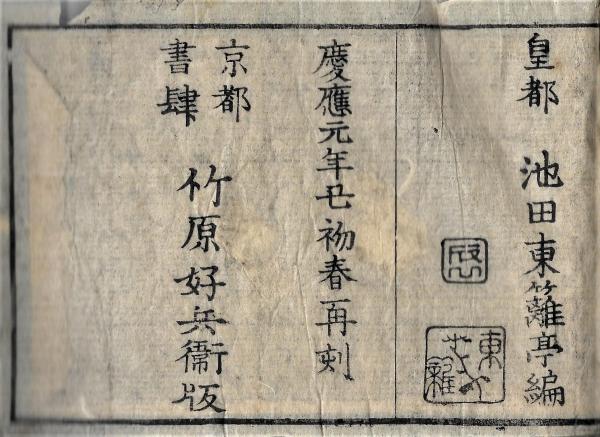 皇都 池田東籬亭編
慶應元年丑初春再刻
京都
書肆
竹原好兵衞版